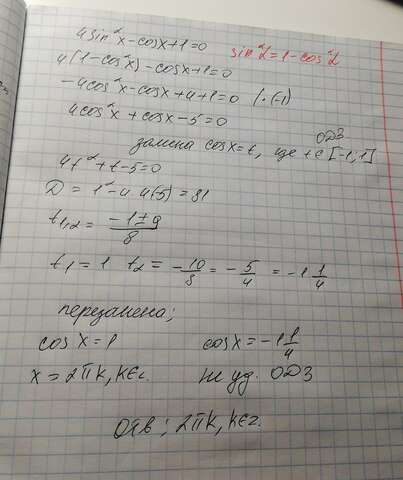 4sin²x-cosx+1=0 sin²α=1-cos²α
4(1-cos²x)-cosx+1=0
-4cos²x-cosx+4+1=0 |·(-1)
4cos²x+cosx-5=0
ОДЗ
замена cosx=t, где t∈[-1;1]
4t²+t-5=0
D=1²-4·4(5)=81
t₁,₂=(-1±9)/8
t₁=1 t₂=-10/8=-5/4=-1 1/4
перезамена;
cosx=1 cosx=-1 1/4
x=2πk, k∈z. не уд. ОДЗ
Отв; 2πk, k∈z.